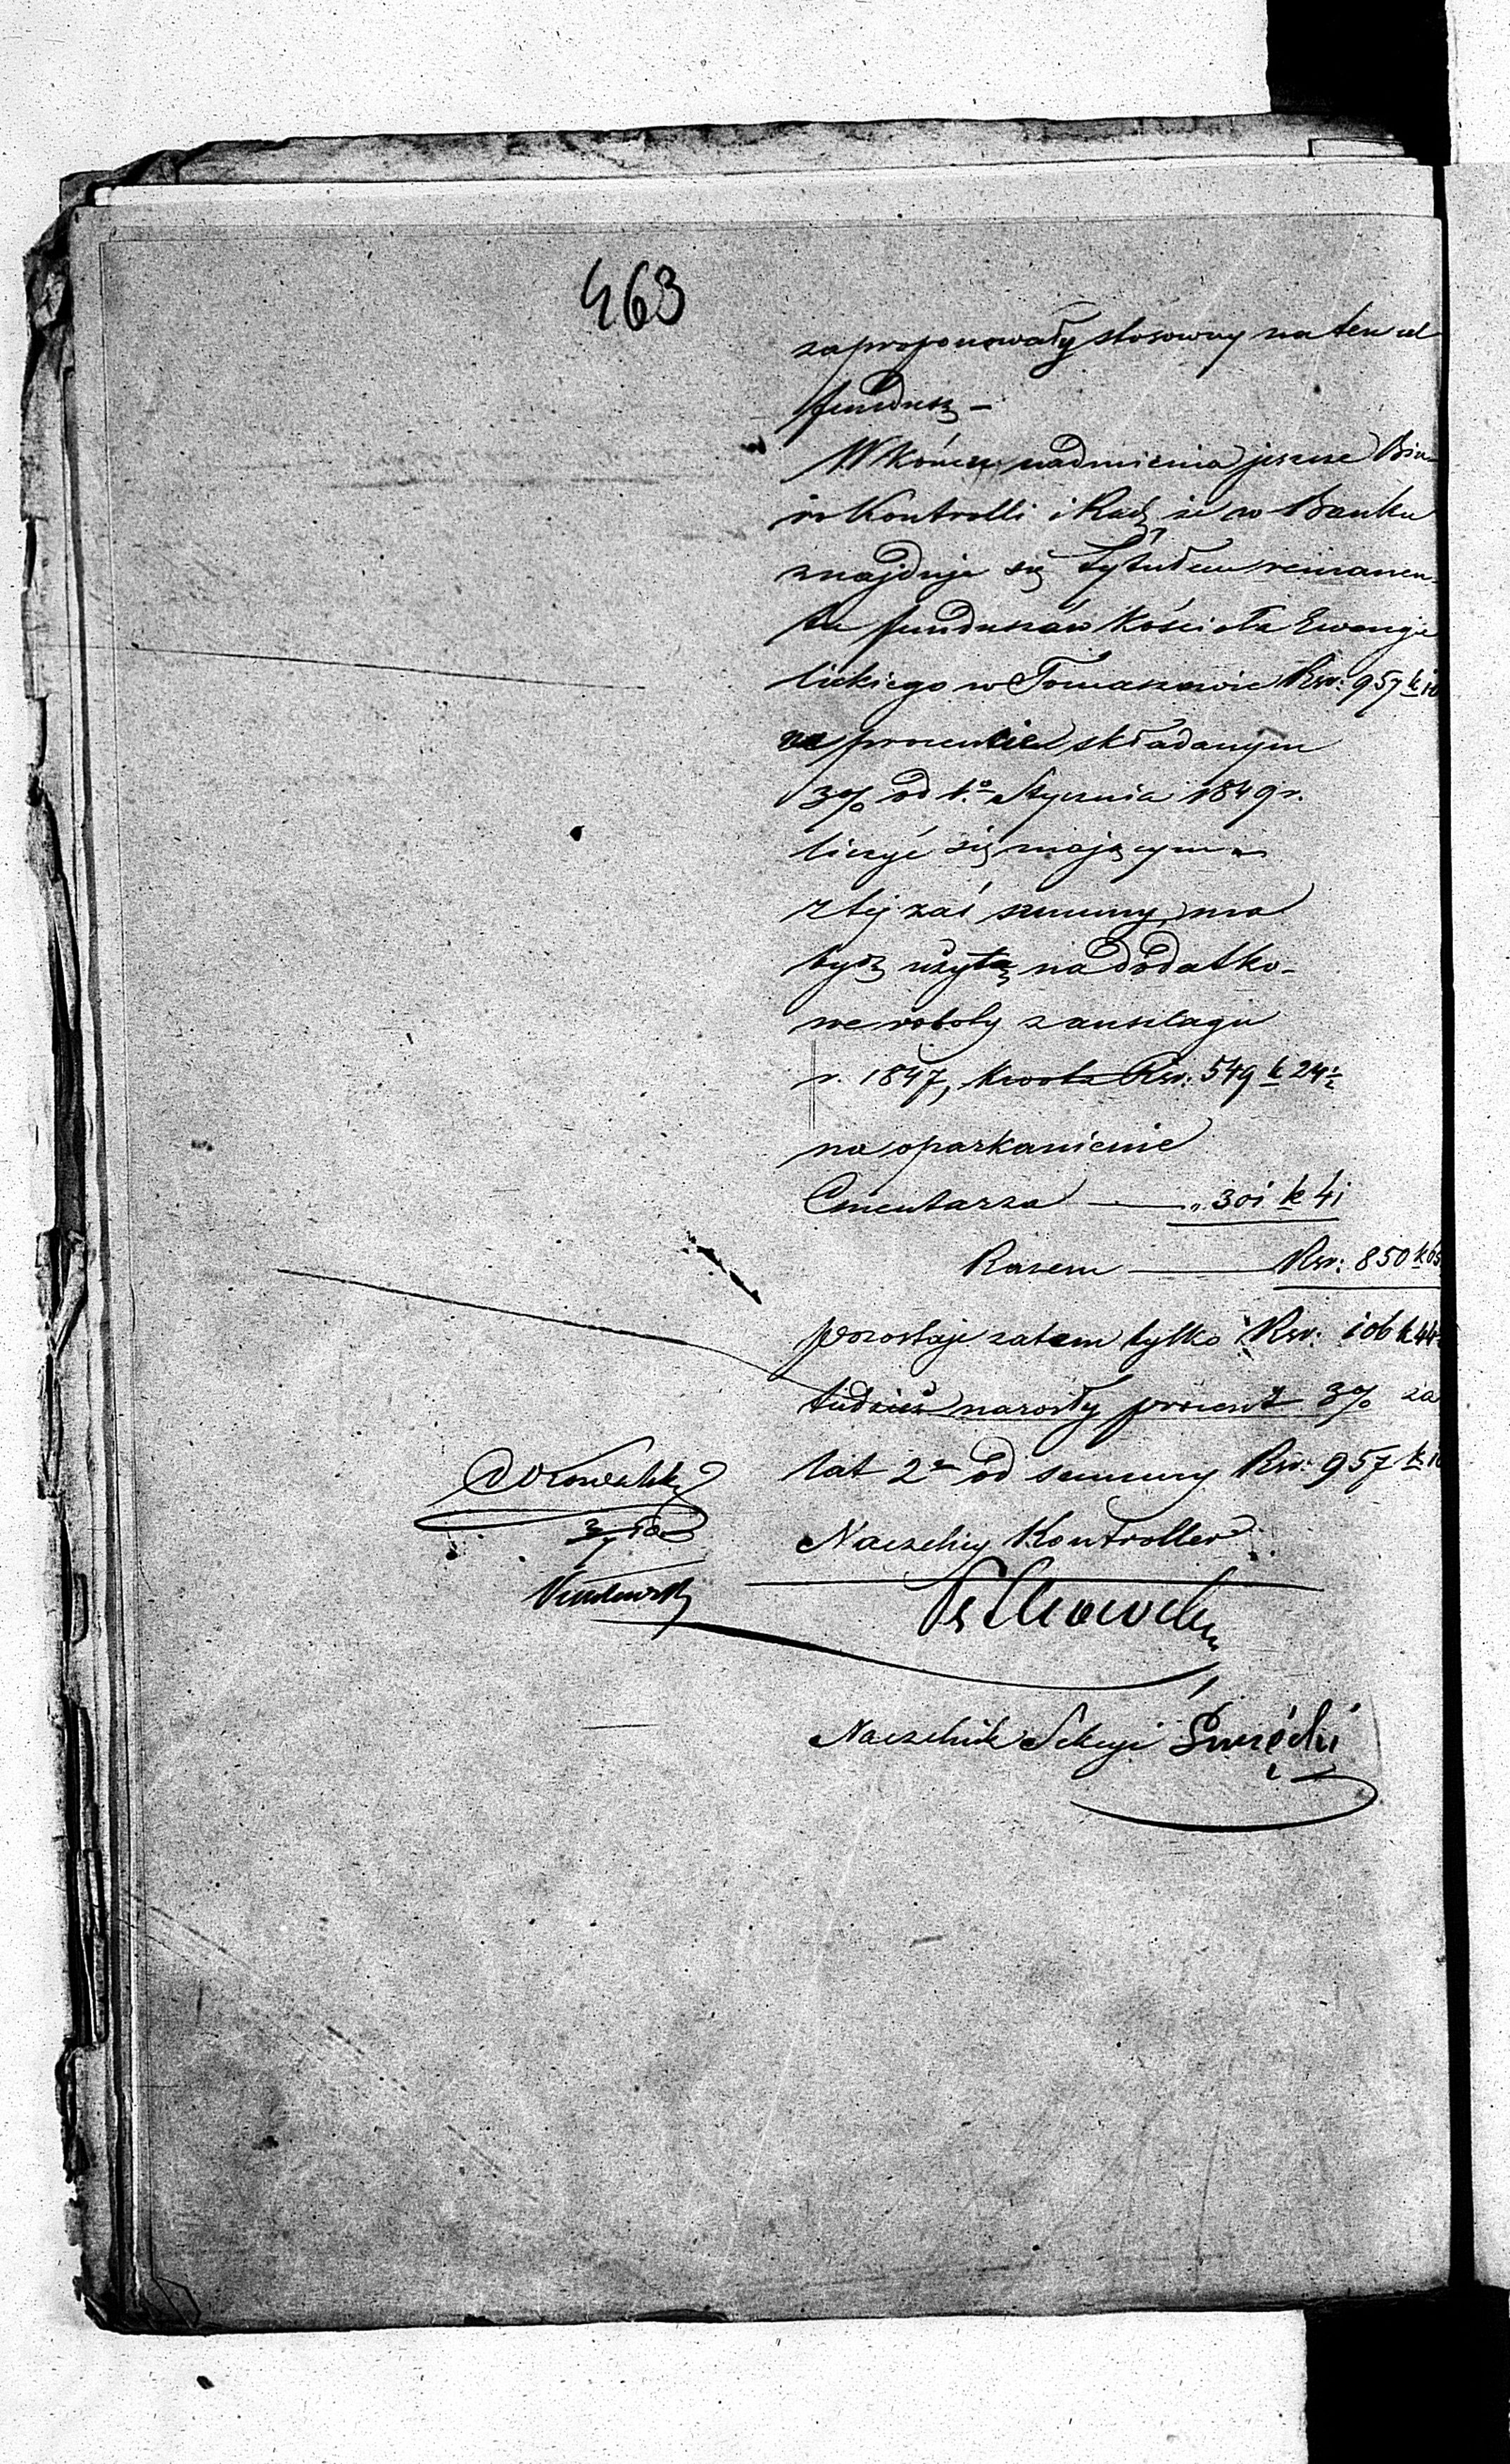 463
zaproponowały stosowny na ten cel
fundusz –
W końcu nadmienia jeszcze Biu-
ro Kontrolli i Rach. że w Banku
znajduje się tytułem remanen-
tu funduszów Kościoła Ewange
lickiego w Tomaszowie Rsr: 957 k 10
na procencie składanym
3% od 1.º Stycznia 1849 r.
liczyć się mającym –
z tej zaś summy ma
bydź użytą na dodatko-
we roboty z anszlagu
r. 1847, kwota Rsr: 549 k 24½
na oparkanienie
Cmentarza — „ 301 k 41
Razem — Rsr: 850 k 65
pozostaje zatem tylko Rsr: 106 k 44
tudzież narosły procent 3% za
lat 2 od summy Rsr: 957 k 10
Naczelny Kontroller
Naczelnik Sekcyi